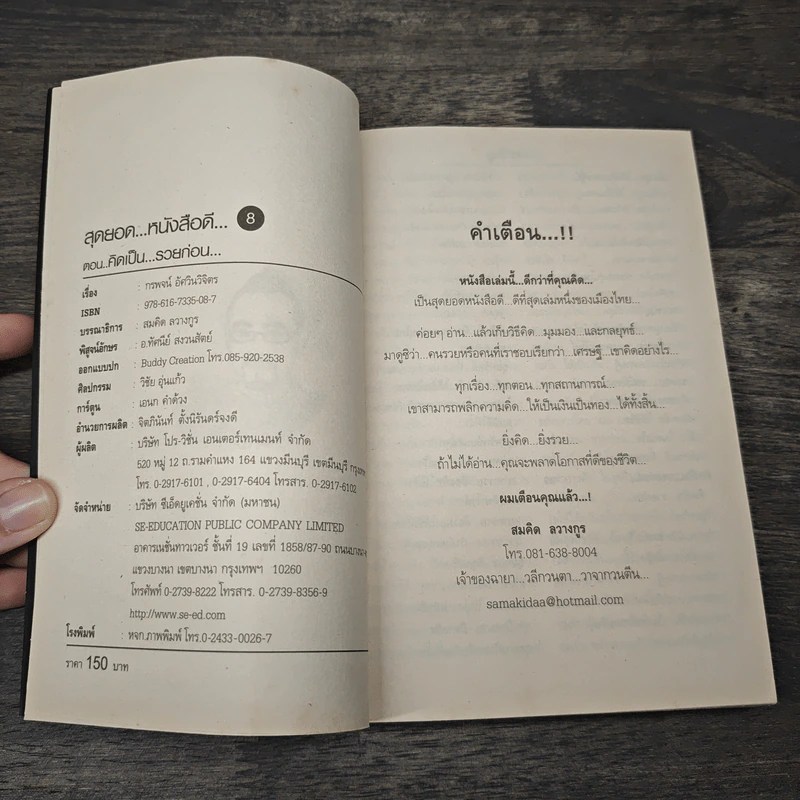 สุดยอด...หนังสือดี... 8
ตอน..คิดเป็น...รวยก่อน...
เรื่อง : กรพจน์ อัศวินวิจิตร
ISBN : 978-616-7335-08-7
บรรณาธิการ : สมคิด ลวางกูร
พิสูจน์อักษร : อ.ทัศนีย์ สงวนสัตย์
ออกแบบปก : Buddy Creation โทร.085-920-2538
ศิลปกรรม : วิชัย อุ่นแก้ว
การ์ตูน : เอนก คำด้วง
อำนวยการผลิต : จิตภินันท์ ตั้งนิรันดร์จงดี
ผู้ผลิต : บริษัท โปร-วิชั่น เอนเตอร์เทนเมนท์ จำกัด
520 หมู่ 12 ถ.รามคำแหง 164 แขวงมีนบุรี เขตมีนบุรี
โทร. 0-2917-6101 , 0-2917-6404 โทรสาร. 0-2917-6102
จัดจำหน่าย : บริษัท ซีเอ็ดยูเคชั่น จำกัด (มหาชน)
SE-EDUCATION PUBLIC COMPANY LIMITED
อาคารเนชั่นทาวเวอร์ ชั้นที่ 19 เลขที่ 1858/87-90
แขวงบางนา เขตบางนา กรุงเทพฯ 10260
โทรศัพท์ 0-2739-8222 โทรสาร. 0-2739-8356-9
http://www.se-ed.com
โรงพิมพ์ : หจก.ภาพพิมพ์ โทร.0-2433-0026-7
ราคา 150 บาท
คำเตือน...!!
หนังสือเล่มนี้...ดีกว่าที่คุณคิด...
เป็นสุดยอดหนังสือดี...ดีที่สุดเล่มหนึ่งของเมืองไทย...
ค่อยๆ อ่าน...แล้วเก็บวิธีคิด...มุมมอง...และกลยุทธ์...
มาดูซิว่า...คนรวยหรือคนที่เราชอบเรียกว่า...เศรษฐี...เขาคิดอย่างไร...
ทุกเรื่อง...ทุกตอน...ทุกสถานการณ์...
เขาสามารถพลิกความคิด...ให้เป็นเงินเป็นทอง...ได้ทั้งสิ้น...
ยิ่งคิด...ยิ่งรวย...
ถ้าไม่ได้อ่าน...คุณจะพลาดโอกาสที่ดีของชีวิต...
ผมเตือนคุณแล้ว...!
สมคิด ลวางกูร
โทร.081-638-8004
เจ้าของฉายา...วลีกวนตา...วาจากวนตีน...
samakidaa@hotmail.com